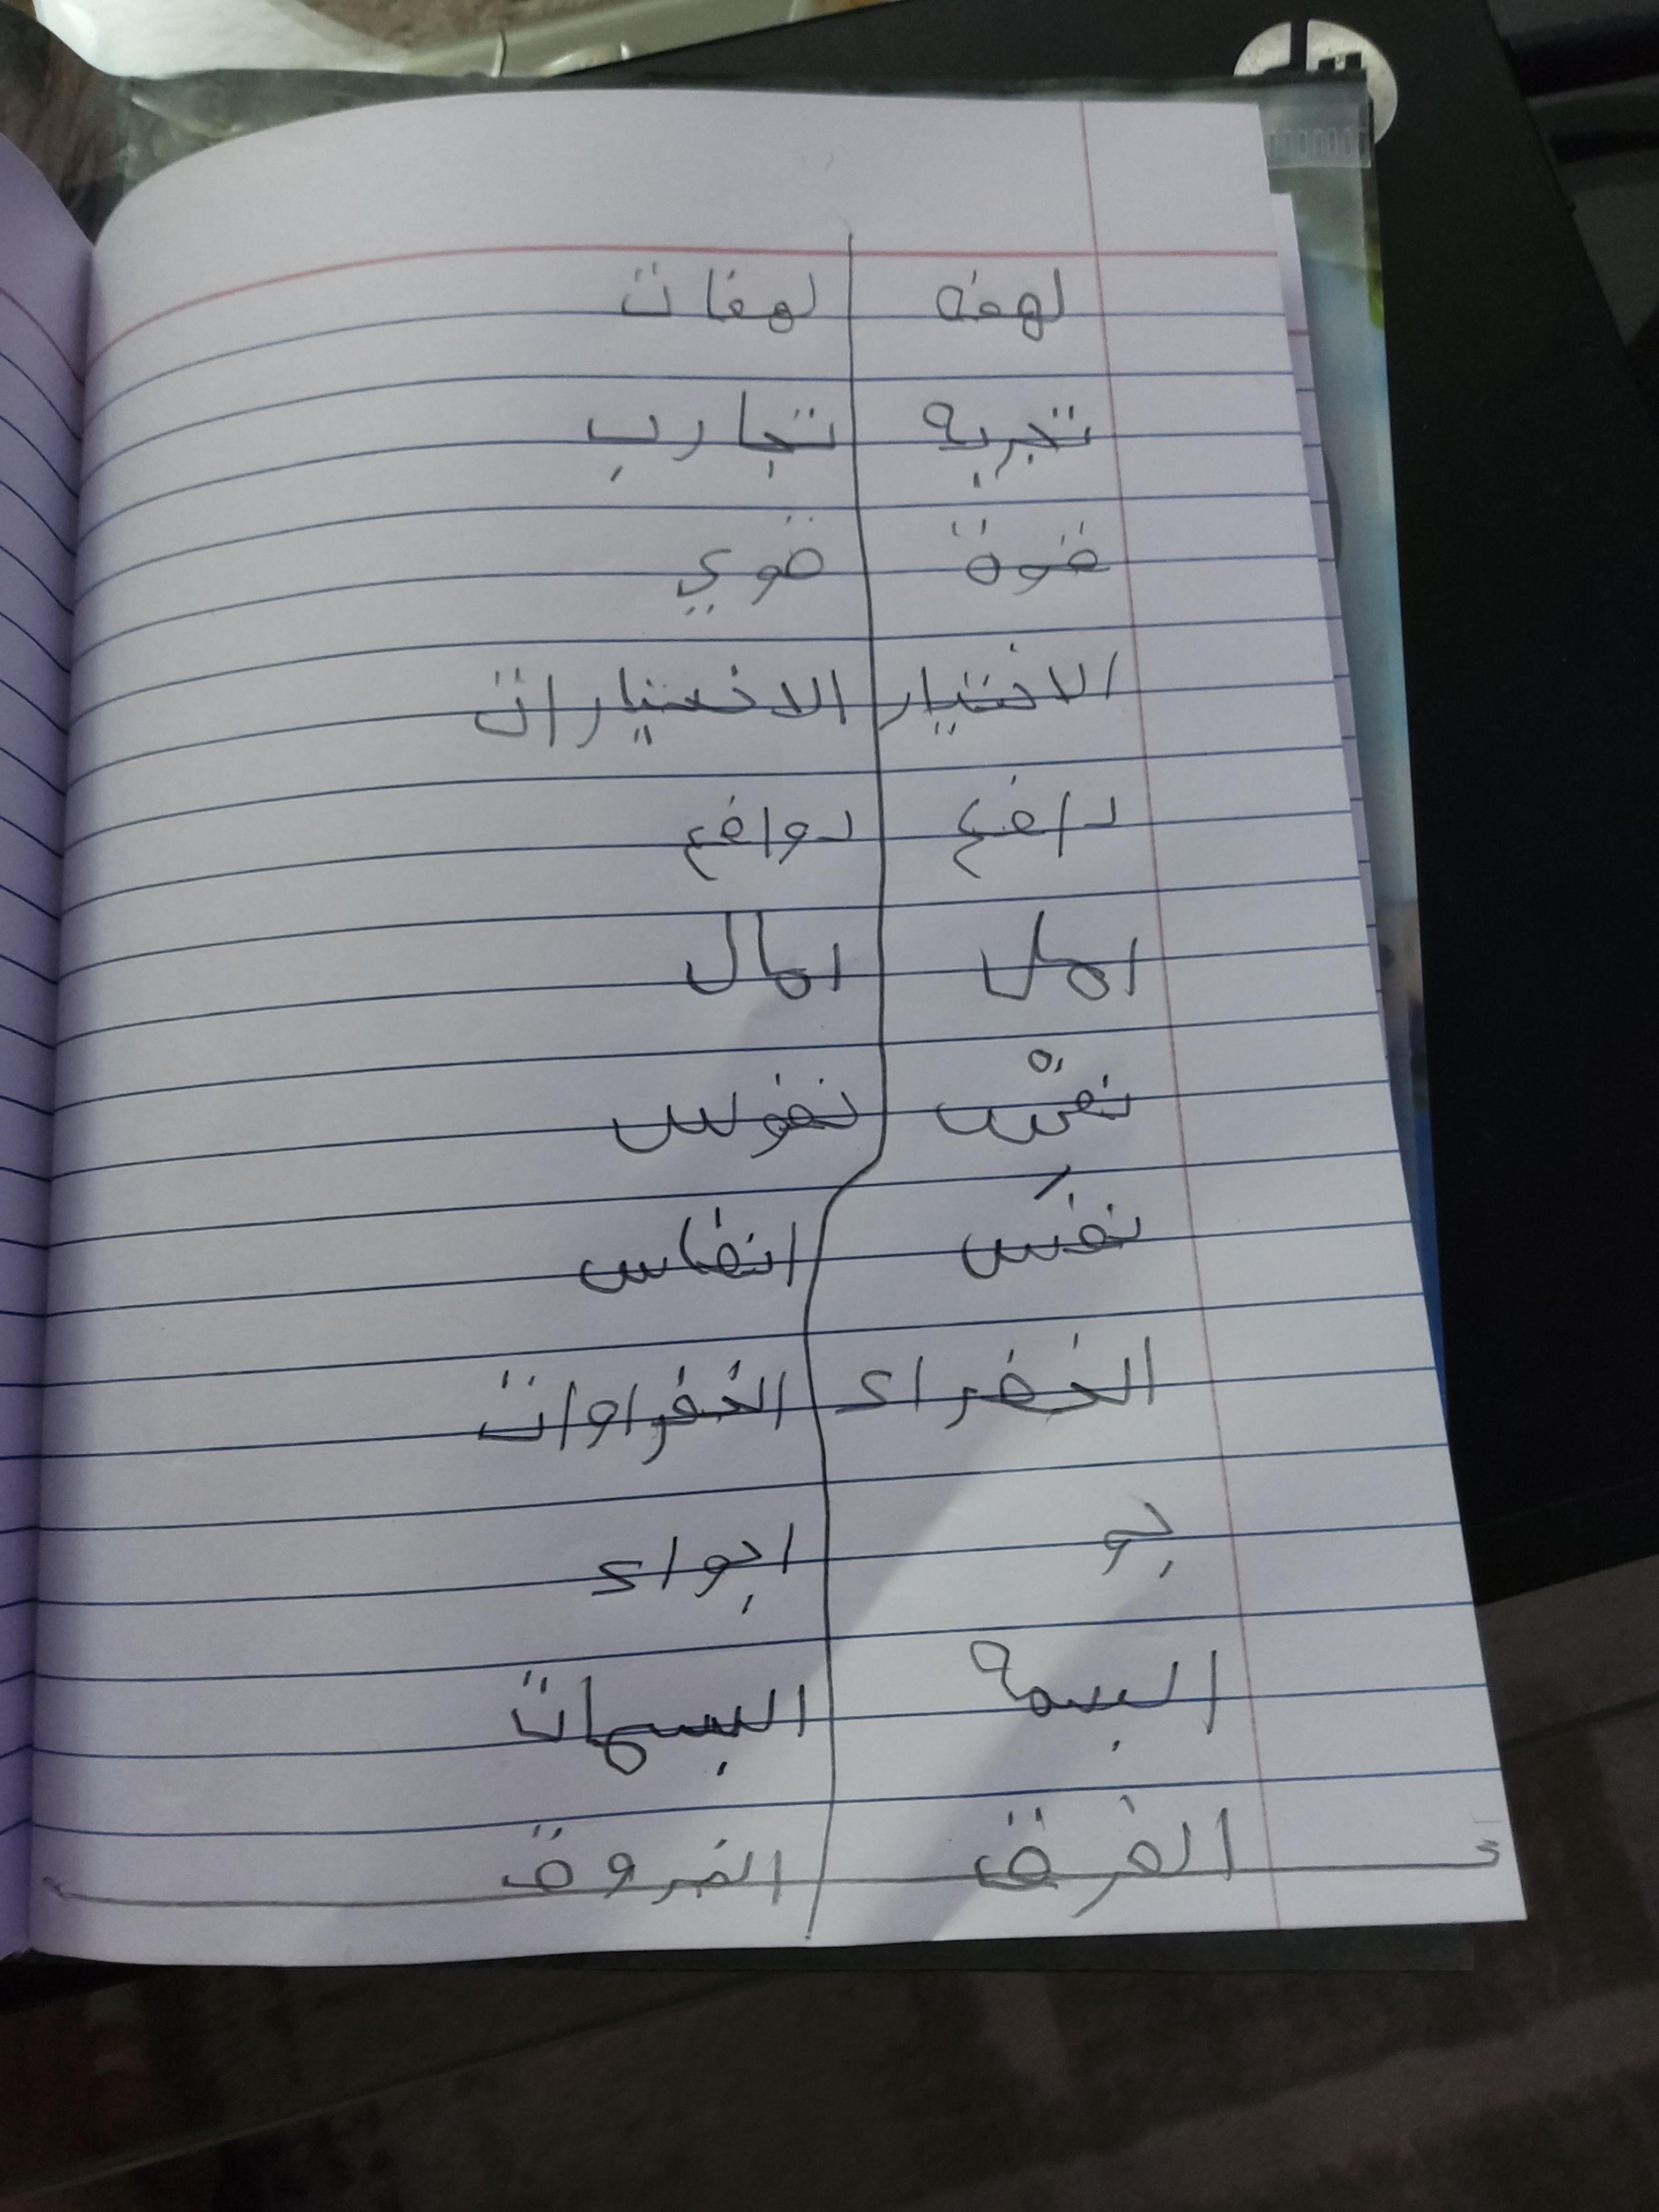 لهفه لهفات
تجربه تجارب
قوة قوي
الاختيار الاختيارات
دافع دوافع
امل امال
نفْس نفوس
نفَس انفاس
الخضراء الخضراوات
جو اجواء
البسمه البسمات
الفرق الفروق